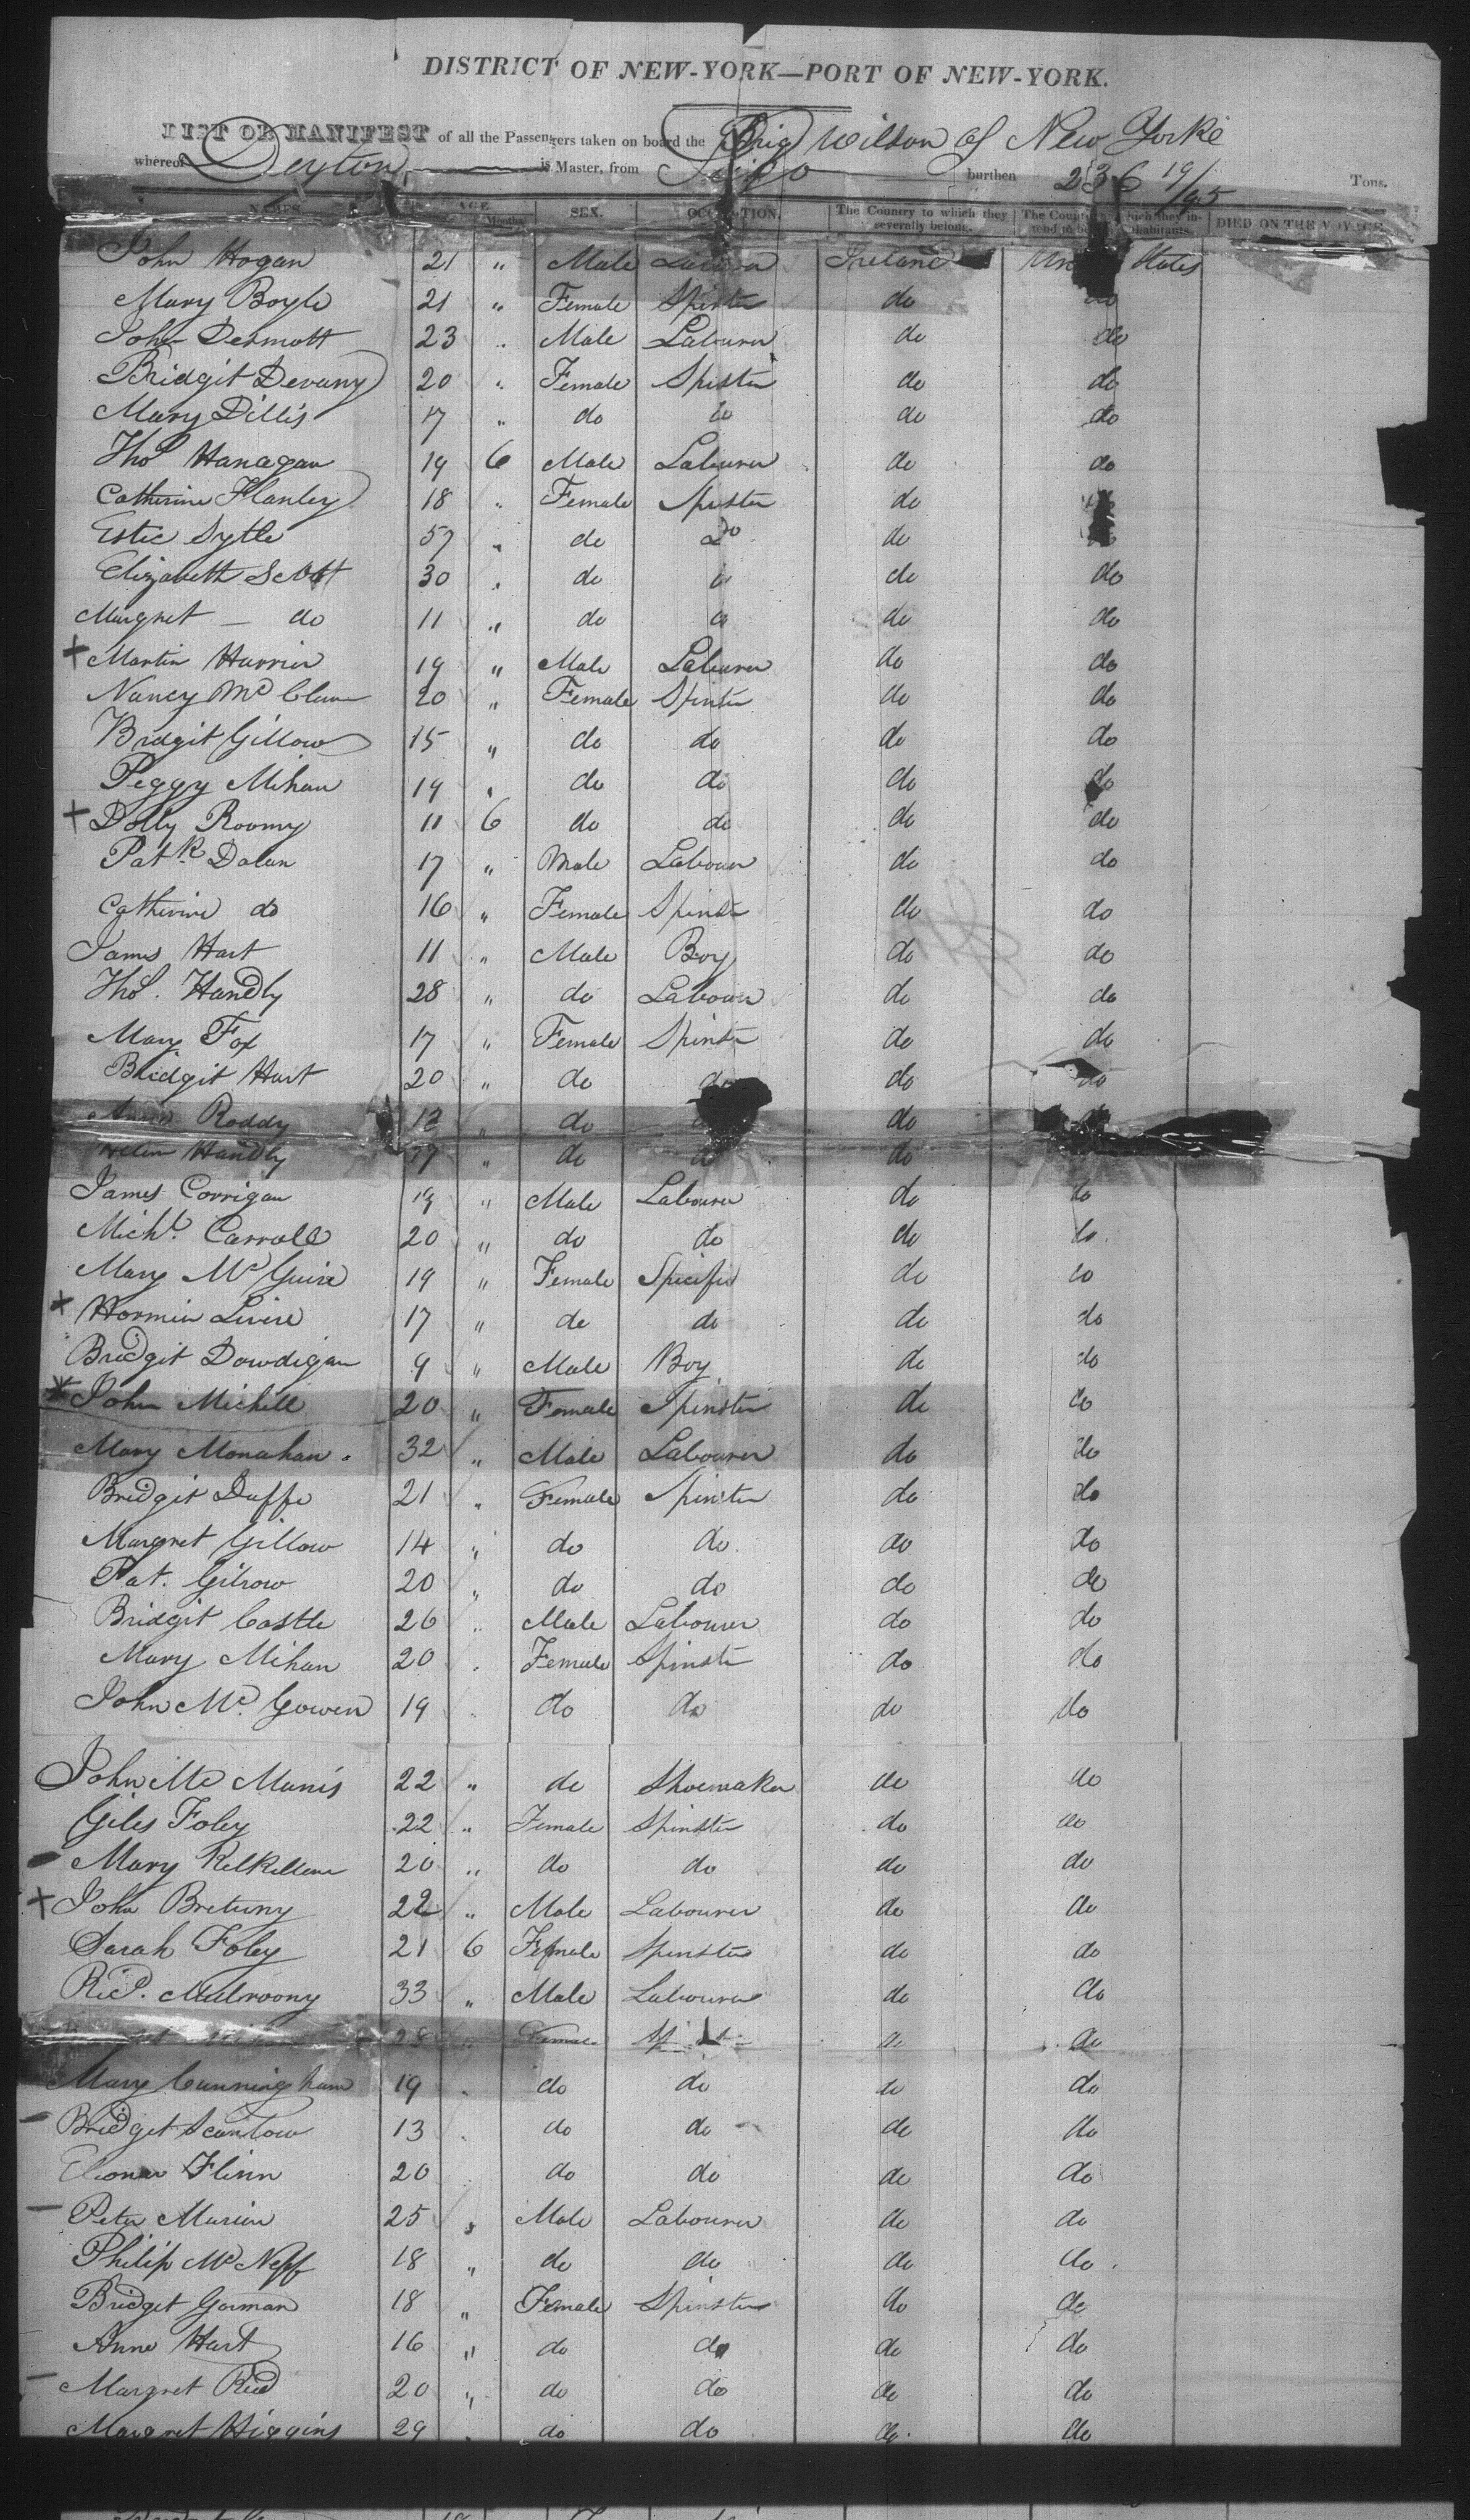 DISTRICT OF NEW-YORK—PORT OF NEW-YORK.
LIST OR MANIFEST of all the Passengers taken on board the Brig Wilson of New Yorke
whereof Deyton is Master, from Sligo burthen 236 19/95 Tons.
NAMES. AGE. Months. SEX. OCCUPATION. The Country to which they severally belong. The Country which they intend to become inhabitants. DIED ON THE VOYAGE.
John Hogan 21 " Male Labourer Ireland United States
Mary Boyle 21 " Female Spister do do
John Dermott 23 " Male Labourer do do
Bridgit Devany 20 " Female Spister do do
Mary Dillis 17 " do do do do
Thos Hanagan 19 6 Male Labourer do do
Catherine Hanley 18 " Female Spister do
Estic Sytle 57 " do do do
Elizabeth Scott 30 " do do do do
Margret — do 11 " do do do do
+ Martin Harrier 19 " Male Labourer do do
Nancy Mc 20 " Female Spinter do do
Bridgit Gillow 15 " do do do do
Peggy Mihan 19 " do do do do
+ Dolly Roomy 11 6 do do do do
Patk Dolan 17 " Male Labourer do do
Catherine do 16 " Female Spinst do do
James Hart 11 " Male Boy do do
Thos. Handly 28 " do Labourer do do
Mary Fox 17 " Female Spinter do do
Bridgit Hart 20 " do do do do
Roddy 13 " do do do
Handly " do do do
James Corrigan 19 " Male Labourer do do
Michl. Carroll 20 " do do do do
Mary Mc Guire 19 " Female do do
+ Livire 17 " do do do do
Bridgit Dowdigan 9 " Male Boy do do
John Michell 20 " Female Spinster do do
Mary Monahan 32 " Male Labourer do do
Bridgit Duffe 21 " Female Spinster do do
Margret Gillow 14 " do do do do
Pat. Gilrow 20 " do do do do
Bridgit Castle 26 " Male Labourer do do
Mary Mihan 20 " Female Spinster do do
John Mc Gowen 19 do do do do
John Mc Manis 22 " do Shoemaker do do
Giles Foley 22 " Female Spinster do do
Mary 20 " do do do do
+ John Bretuny 22 " Male Labourer do do
Sarah Foley 21 6 Female Spinster do do
Ricd. Mulroony 33 " Male Labourer do do
28 Female do do
Mary Cunningham 19 do do do do
Bridget Scanlow 13 do do do do
Eleonar Flinn 20 do do do do
Peter Murien 25 " Male Labourer do do
Philip Mc Neff 18 " do do do do
Bridget Gorman 18 " Female Spinster do do
Anne Hart 16 " do do do do
Margret Ried 20 " do do do do
Margret Higgins 29 do do do do